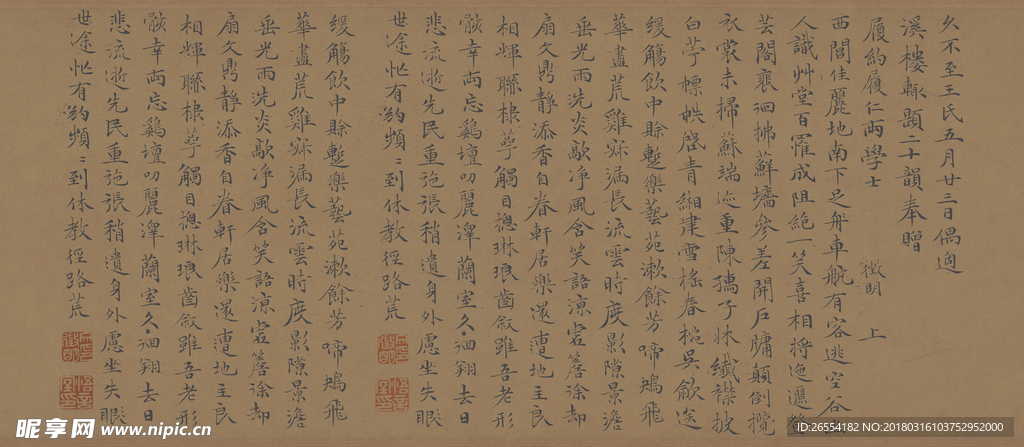 久不至王氏五月廿三日偶過
溪樓輒題二十韻奉贈
履約履仁兩學士
徵明 上
西閶佳麗地南下足舟車航有容逃空谷
人識艸堂百罹成阻絶一笑喜相將迤邐
芸閣襄徊拂蘚墻參差開戶牖顛倒攬
衣裳未掃蘇端迹重陳孺子牀纖襟披
白苧幖帙啓青緗建雪搖春椀吳歈送
緩觴飲中賒蹔樂藝苑漱餘芳啼鴂飛
華盡荒雞寐漏長流雲時度影隙景澹
垂光雨洗炎歊净風含笑語涼宕簷涂却
扇文鼎靜添香自眷軒居樂還遭地主良
相輝聯棣萼觸目總琳琅齒敘雖吾老形
骸幸兩忘雞壇叨麗澤蘭室久徊翔去日
悲流逝先民重弛張稍遺身外慮坐失眼
世途忙有約頻〻到休教徑路荒
緩觴飲中賒蹔樂藝苑漱餘芳啼鴂飛
華盡荒雞寐漏長流雲時度影隙景澹
垂光雨洗炎歊净風含笑語涼宕簷涂却
扇文鼎靜添香自眷軒居樂還遭地主良
相輝聯棣萼觸目總琳琅齒敘雖吾老形
骸幸兩忘雞壇叨麗澤蘭室久徊翔去日
悲流逝先民重弛張稍遺身外慮坐失眼
世途忙有約頻〻到休教徑路荒
昵享网 www.nipic.cn
ID:26554182 NO:20180316103752952000